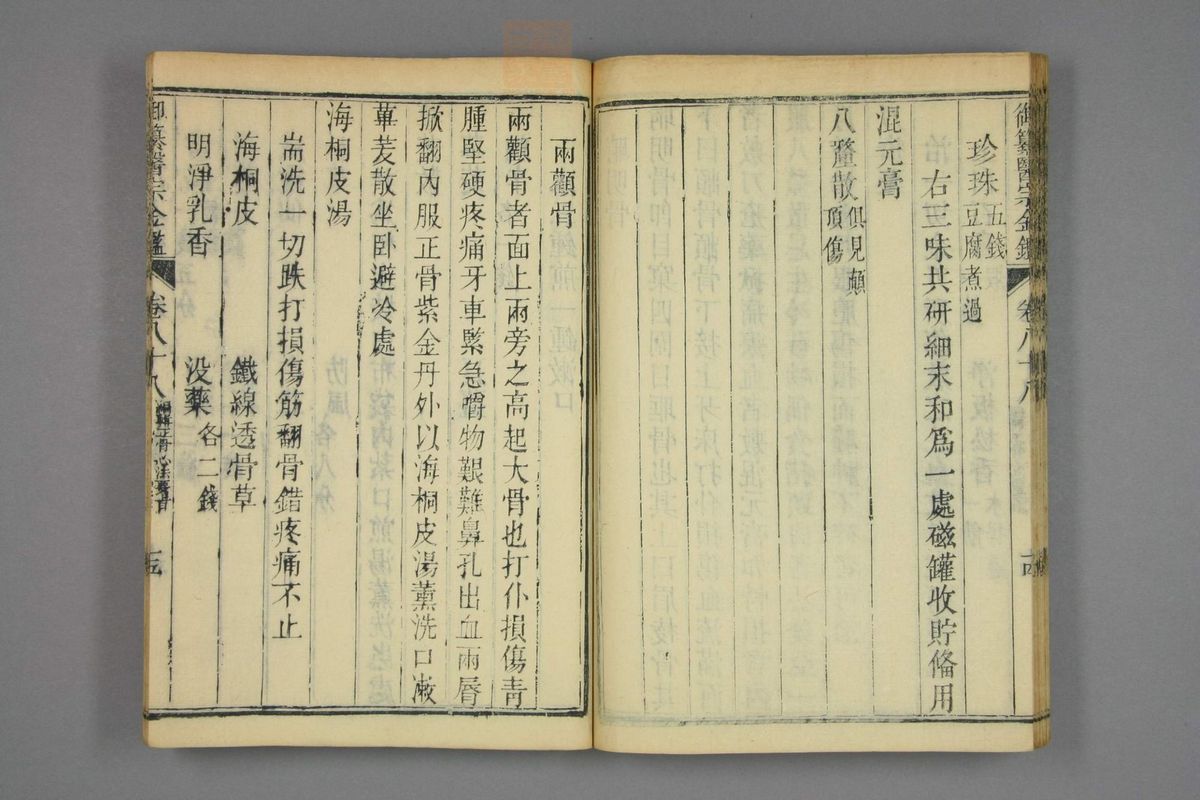 御纂醫宗金鑑 卷八十八
珍珠五錢豆腐煮過
右三味共研細末和為一處磁罐收貯俻用
混元膏
八釐散俱見顛頂傷
兩顴骨
兩顴骨者面上兩旁之高起大骨也打仆損傷青
腫堅硬疼痛牙車緊急嚼物艱難鼻孔出血兩唇
掀翻內服正骨紫金丹外以海桐皮湯薰洗口漱
蓽茇散坐卧避冷處
海桐皮湯
耑洗一切跌打損傷筋翻骨錯疼痛不止
海桐皮 鐵線透骨草
明淨乳香 没藥各二錢
御纂醫宗金鑑 卷八十八